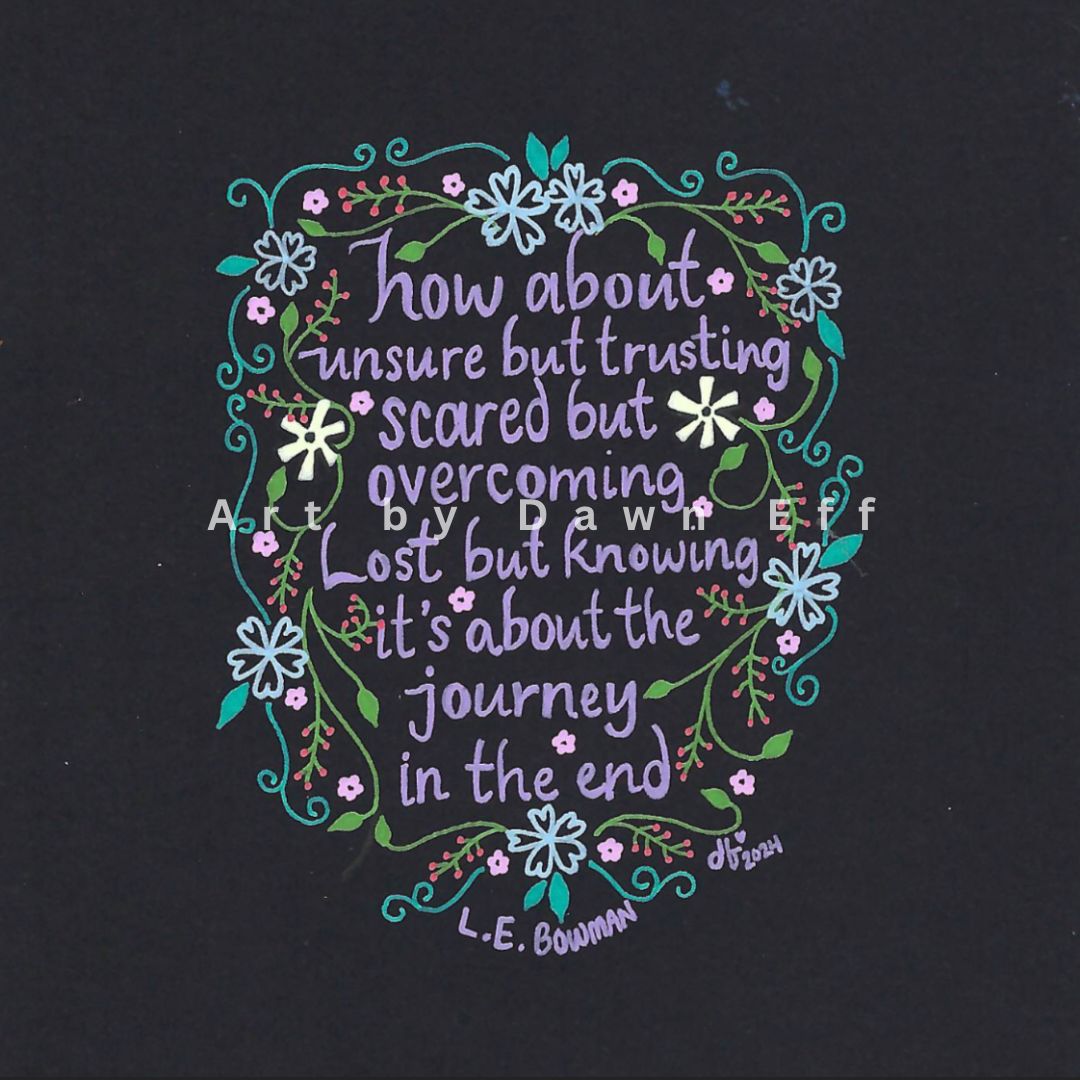 how about
unsure but trusting
scared but
overcoming
Art by Dawn Eff
Lost but knowing
it's about the
journey
in the end
2024
L.E. BOWMAN